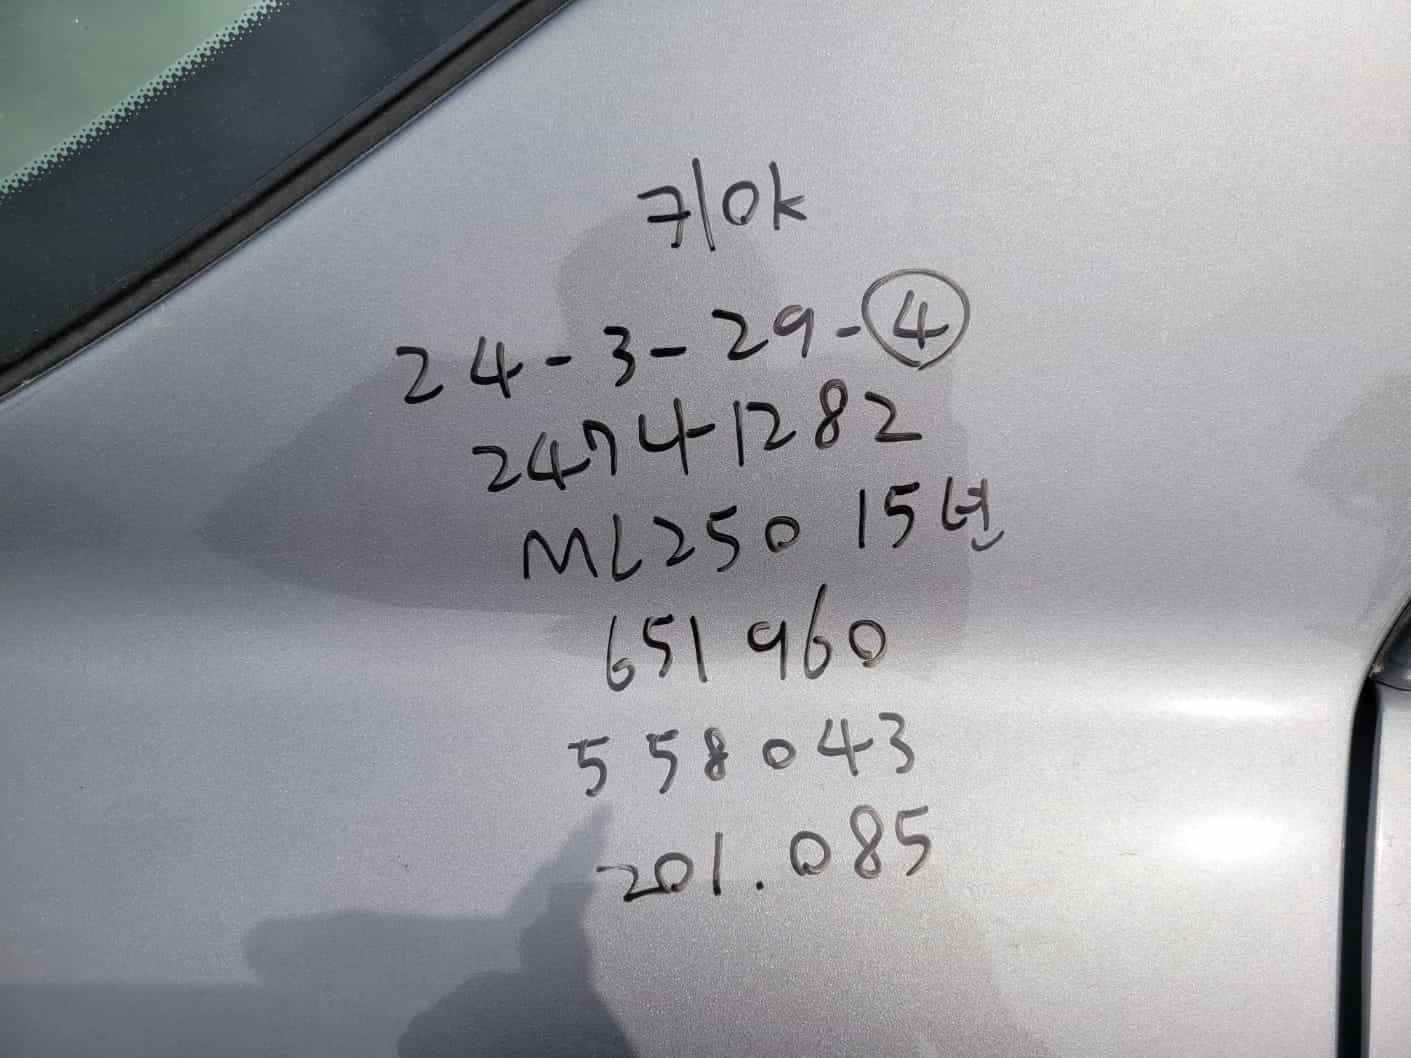 기ok
24-3-29-④
24741282
ML250 15년
651 960
558043
201.085